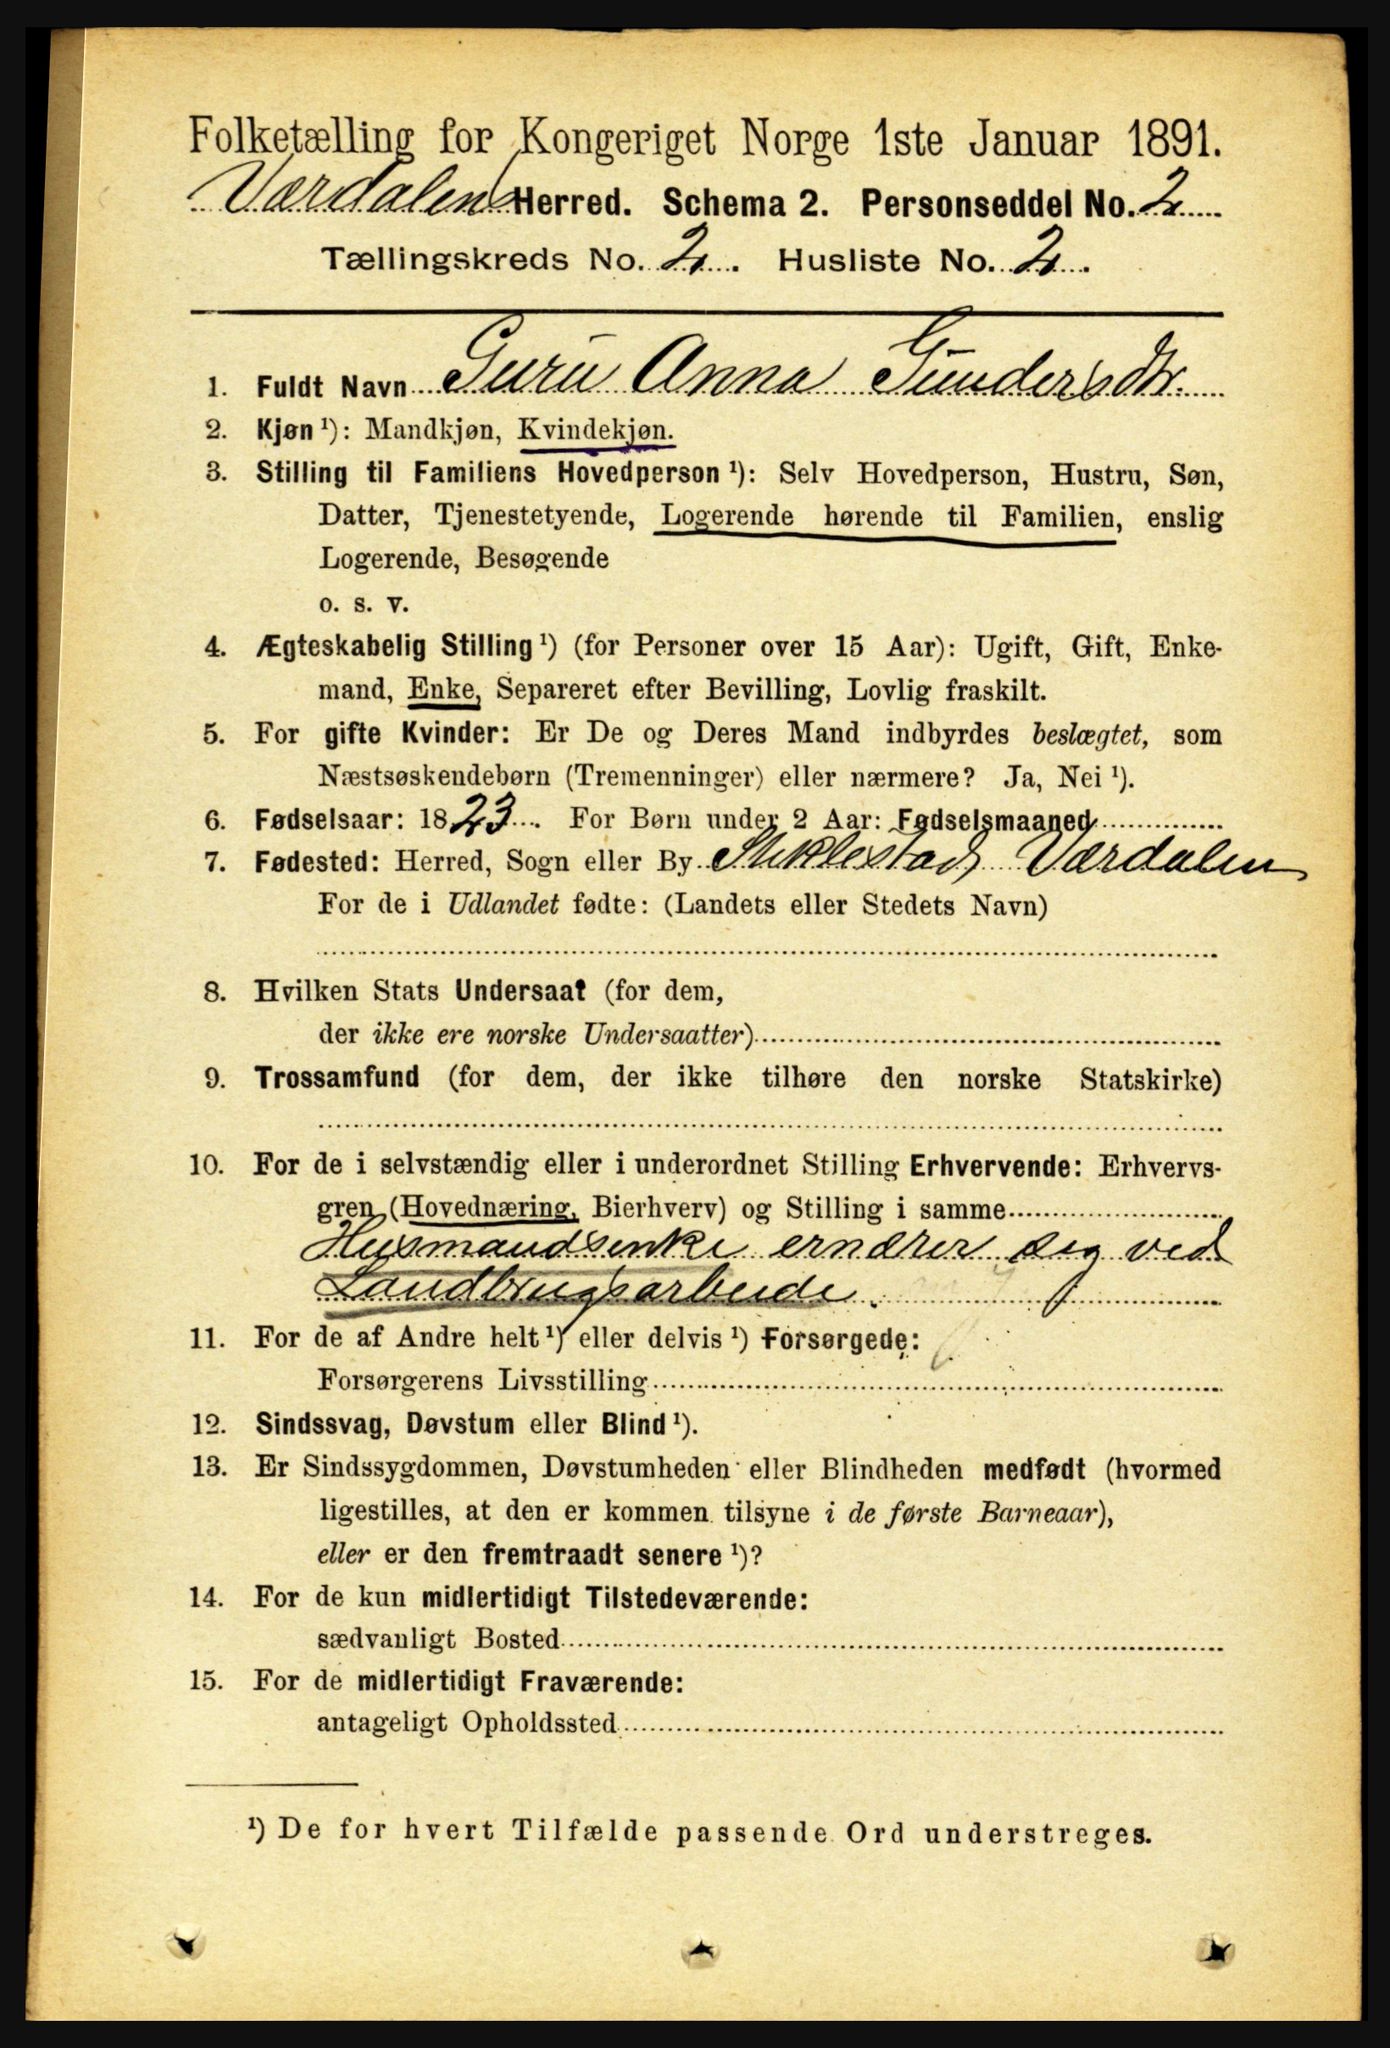 Folketælling for Kongeriget Norge 1ste Januar 1891.
Værdalens Herred. Schema 2. Personseddel No. 2
Tællingskreds No. 2. Husliste No. 2.
1. Fuldt Navn Guru Anna Gundersdtr.
2. Kjøn ¹): Mandkjøn, Kvindekjøn.
3. Stilling til Familiens Hovedperson ¹): Selv Hovedperson, Hustru, Søn,
Datter, Tjenestetyende, Logerende hørende til Familien, enslig
Logerende, Besøgende
o. s. v.
4. Ægteskabelig Stilling ¹) (for Personer over 15 Aar): Ugift, Gift, Enke-
mand, Enke, Separeret efter Bevilling, Lovlig fraskilt.
5. For gifte Kvinder: Er De og Deres Mand indbyrdes beslægtet, som
Næstsøskendebørn (Tremenninger) eller nærmere? Ja, Nei ¹).
6. Fødselsaar: 1823. For Børn under 2 Aar: Fødselsmaaned
7. Fødested: Herred, Sogn eller By Stiklestad Værdalen
For de i Udlandet fødte: (Landets eller Stedets Navn)
8. Hvilken Stats Undersaat (for dem,
der ikke ere norske Undersaatter)
9. Trossamfund (for dem, der ikke tilhøre den norske Statskirke)
10. For de i selvstændig eller i underordnet Stilling Erhvervende: Erhvervs-
gren (Hovednæring, Bierhverv) og Stilling i samme
Husmandsenke ernærer sig ved
Landbrugsarbeide.
11. For de af Andre helt ¹) eller delvis ¹) Forsørgede:
Forsørgerens Livsstilling
12. Sindssvag, Døvstum eller Blind ¹).
13. Er Sindssygdommen, Døvstumheden eller Blindheden medfødt (hvormed
ligestilles, at den er kommen tilsyne i de første Barneaar),
eller er den fremtraadt senere ¹)?
14. For de kun midlertidigt Tilstedeværende:
sædvanligt Bosted
15. For de midlertidigt Fraværende:
antageligt Opholdssted
¹) De for hvert Tilfælde passende Ord understreges.